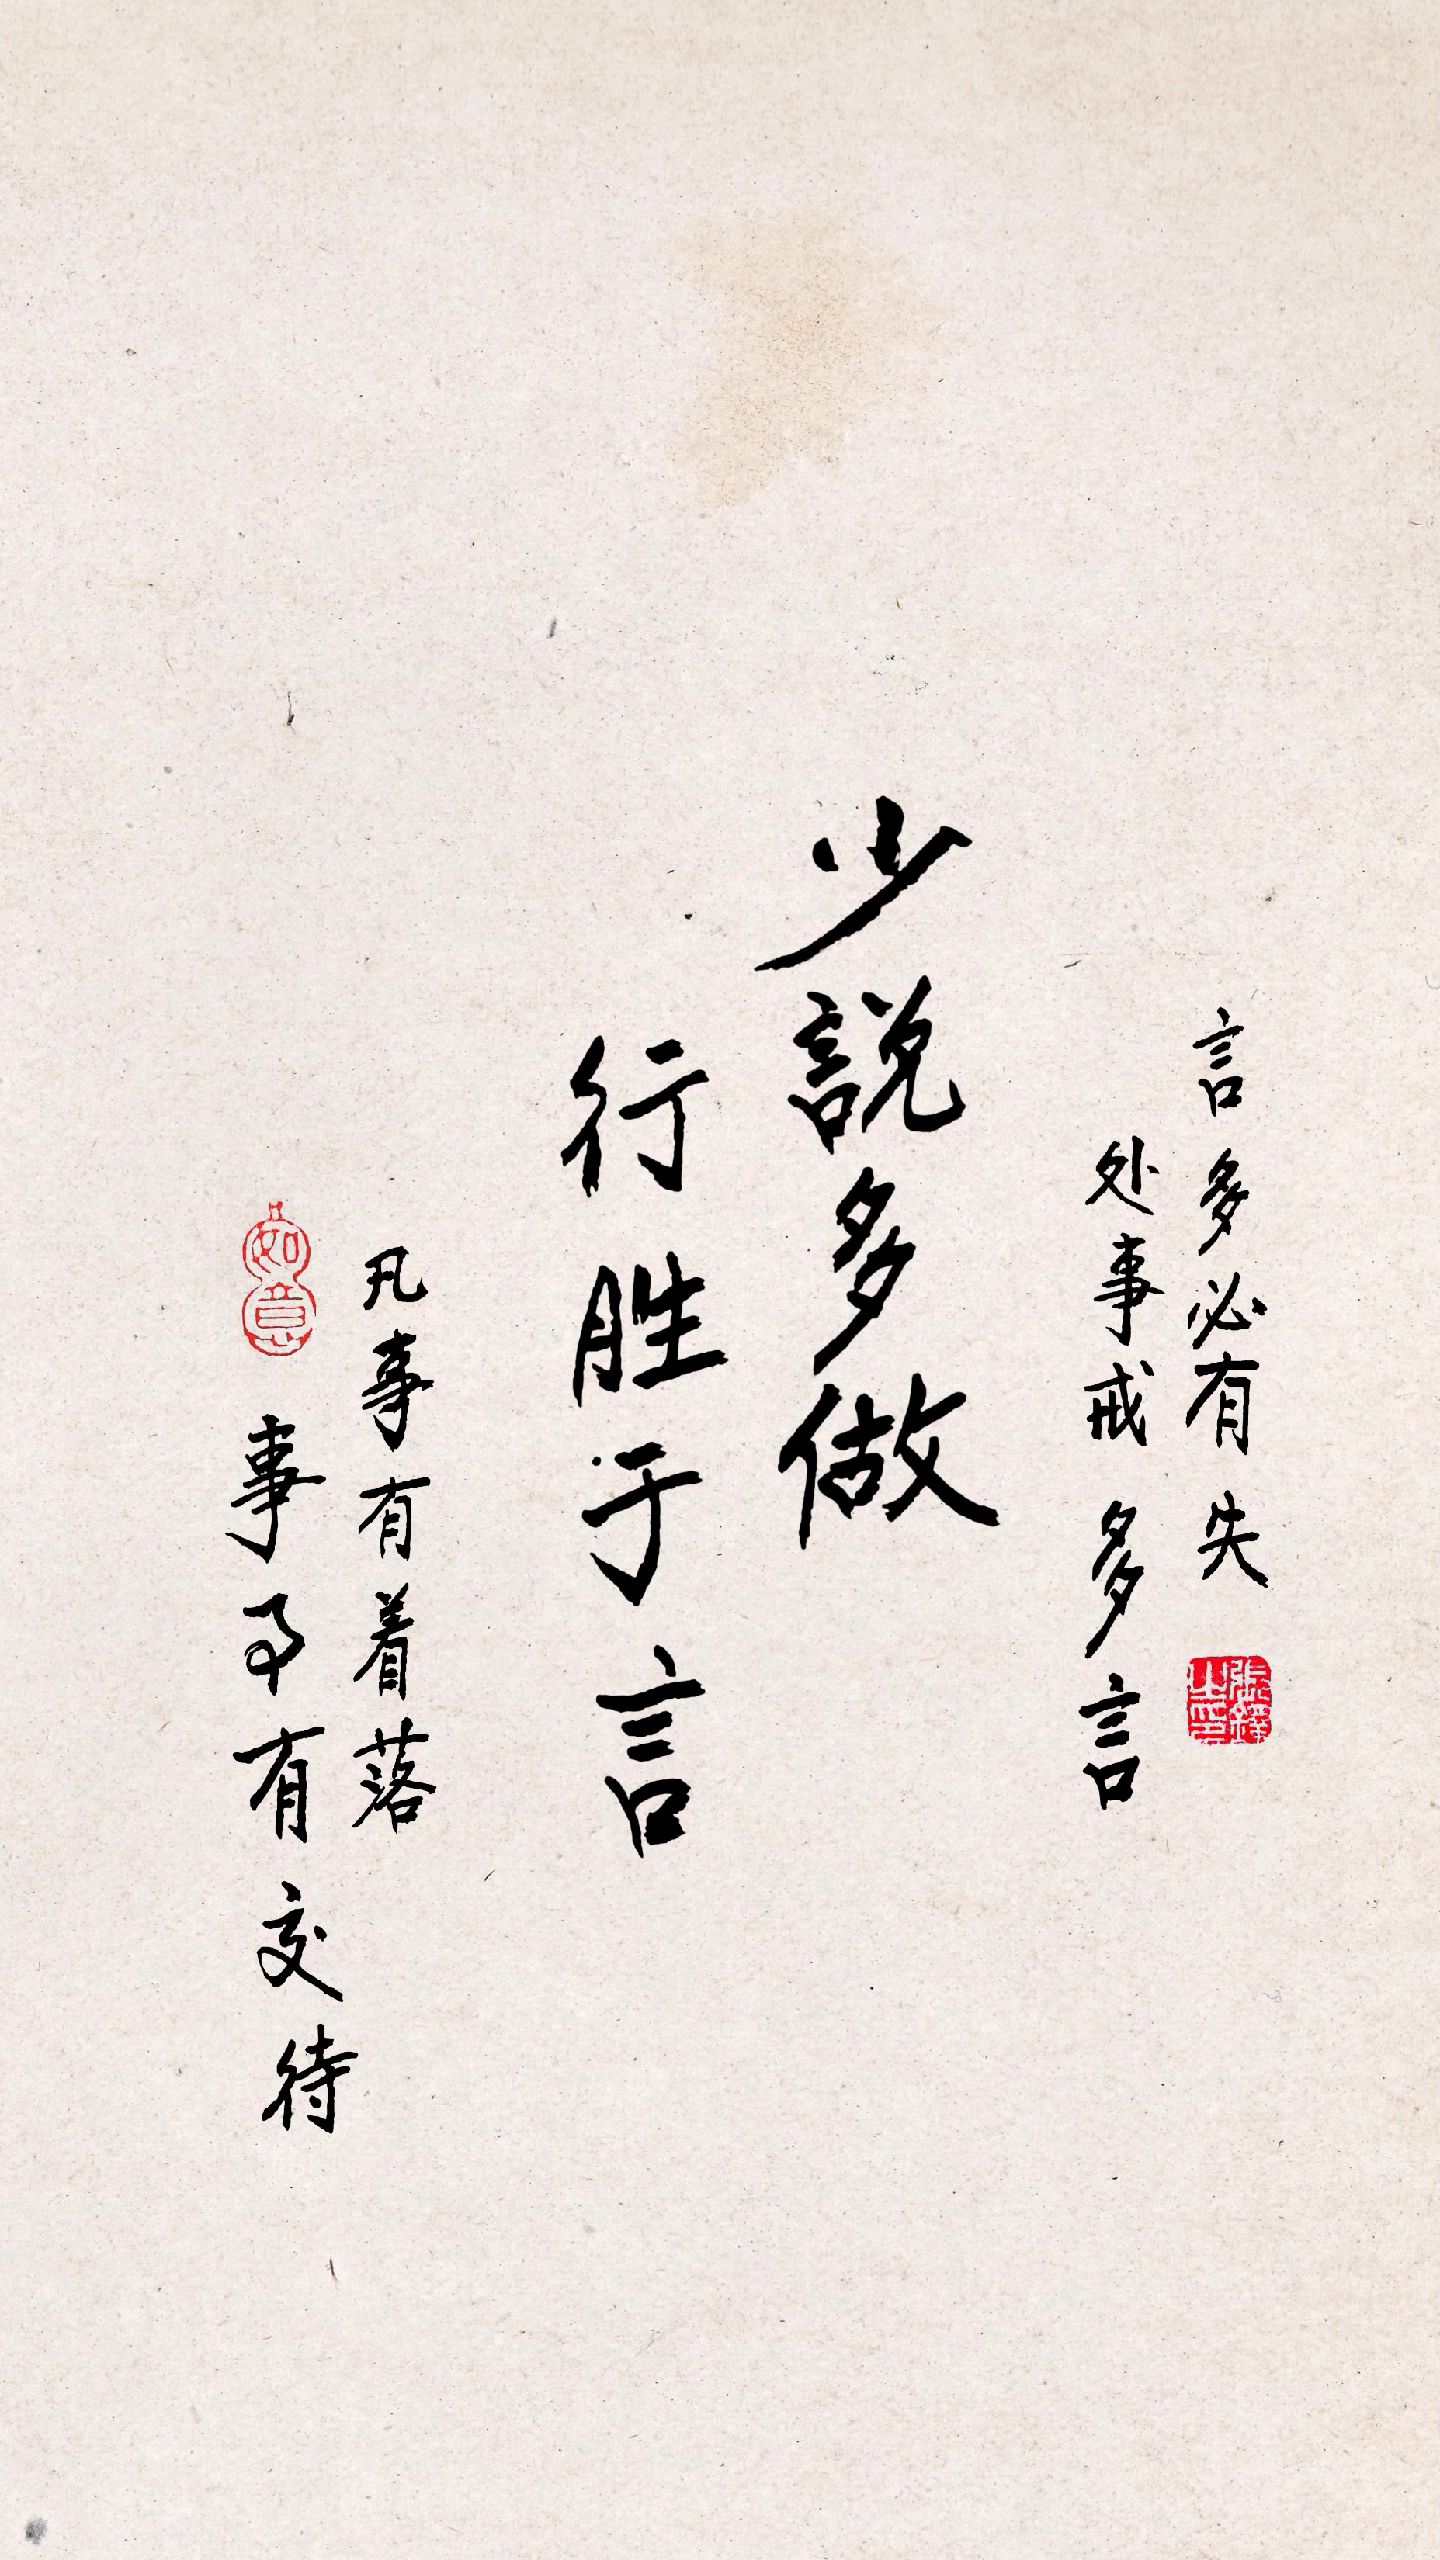 言多必有失
处事戒多言
少説多做
行胜于言
凡事有着落
事事有交待
如意